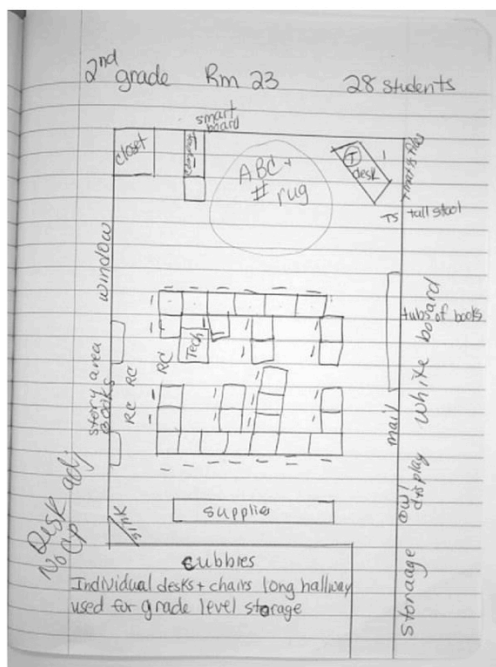 2nd grade Rm 23 28 students
smart
board
closet
ABC +
# rug
T
desk
TS tall stool
window
tubs of books
white board
Tech
RC
RC
RC
story area
books
mail
owl
display
Desk adj
No cp
sink
supplies
storaage
cubbies
Individual desks + chairs long hallway
used for grade level storage